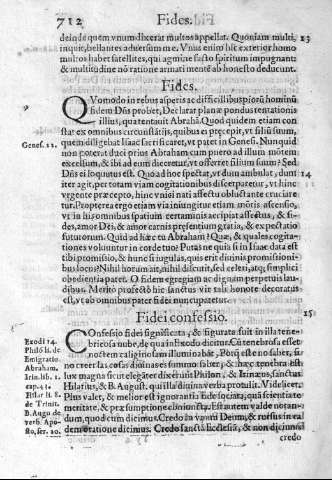 712 Fides.
deinde quem vnum dicerat multos appellat. Quoniam multi, 13
inquit, bellantes aduersum me. Vnus enim hic exterior homo
multos habet satellites, qui agmine facto spiritum impugnant:
& multitudine nõ ratione armati mente ab honesto deducunt.
Fides.
QVomodo in rebus asperis ac difficilibus piorũ hominũ
fidem Dñs probet, Declarat planè pondus tentationis
illius, qua tentauit Abrahã. Quod quidem etiam con
stat ex omnibus circunstãtijs, quibus ei præcepit, vt filiũ suum,
Genes. 22. quem diligebat Isaac sacrificaret, vt patet in Genesi. Nunquid
non poterat duci prius Abraham cum puero ad illum mõtem
excelsum, & ibi ad eum diceretur, vt offerret filium suum? Sed
Dñs ei loquutus est. Quo ad hoc spectat, vt dum ambulat, dum 14
iter agit, per totam viam cogitationibus discerpatur, vt hinc
vrgente præcepto, hinc vnici nati affectu obluctante cruciare
tur. Propterea ergo etiam via iniungitur etiam mõtis ascensio,
vt in his omnibus spatium certaminis accipiat affectus, & fi-
des, amor Dei, & amor carnis præsentium gratia, & expectatio
futurorum. Quid ad hæc tu Abraham? Quæ, & quales cogita-
tiones voluuntur in corde tuo? Putas ne quis si in Isaac data est
tibi promissio, & hunc si iugulas, quis erit diuinis promissioni-
bus locus? Nihil horum ait, nihil discutit, sed celeri, atq; simplici
obedientia paret. O fidem egregiam ac dignam perpetuis lau-
dibus. Merito profectò hic sanctus vir tali honore decoratus
est, vt ab omnibus pater fidei nuncupatur.
Fidei confessio. 15
COnfessio fidei significata, & figurata fuit in illa tene-
Exodi 14. bricosa nube, de qua in Exodo dicitur. Cũ tenebrosa esset
Philõ li. de noctem caliginosam illuminabat.
Emigratio.
Abraham,
Irin. lib. 1. lux magna sicut eleganter dixerunt Philon. & Irinæos, sanctus
cap. 4. Hilarius, & B. August. qui illa diuina verba protulit. Videlicet.
Hilar li. 8. Plus valet, & melior est ignorantia fide sociata, quã scientia te
de Trinit. meritate, & præsumptione coniuncta. Est autem valde notan-
B. Augu de dum, quod cum dicimus. Credo in vnum Deum, & rursus in ea
verb. Apo- dem oratione dicimus. Credo sanctã Ecclesiã, & non dicimus
sto, ser. 20. credo